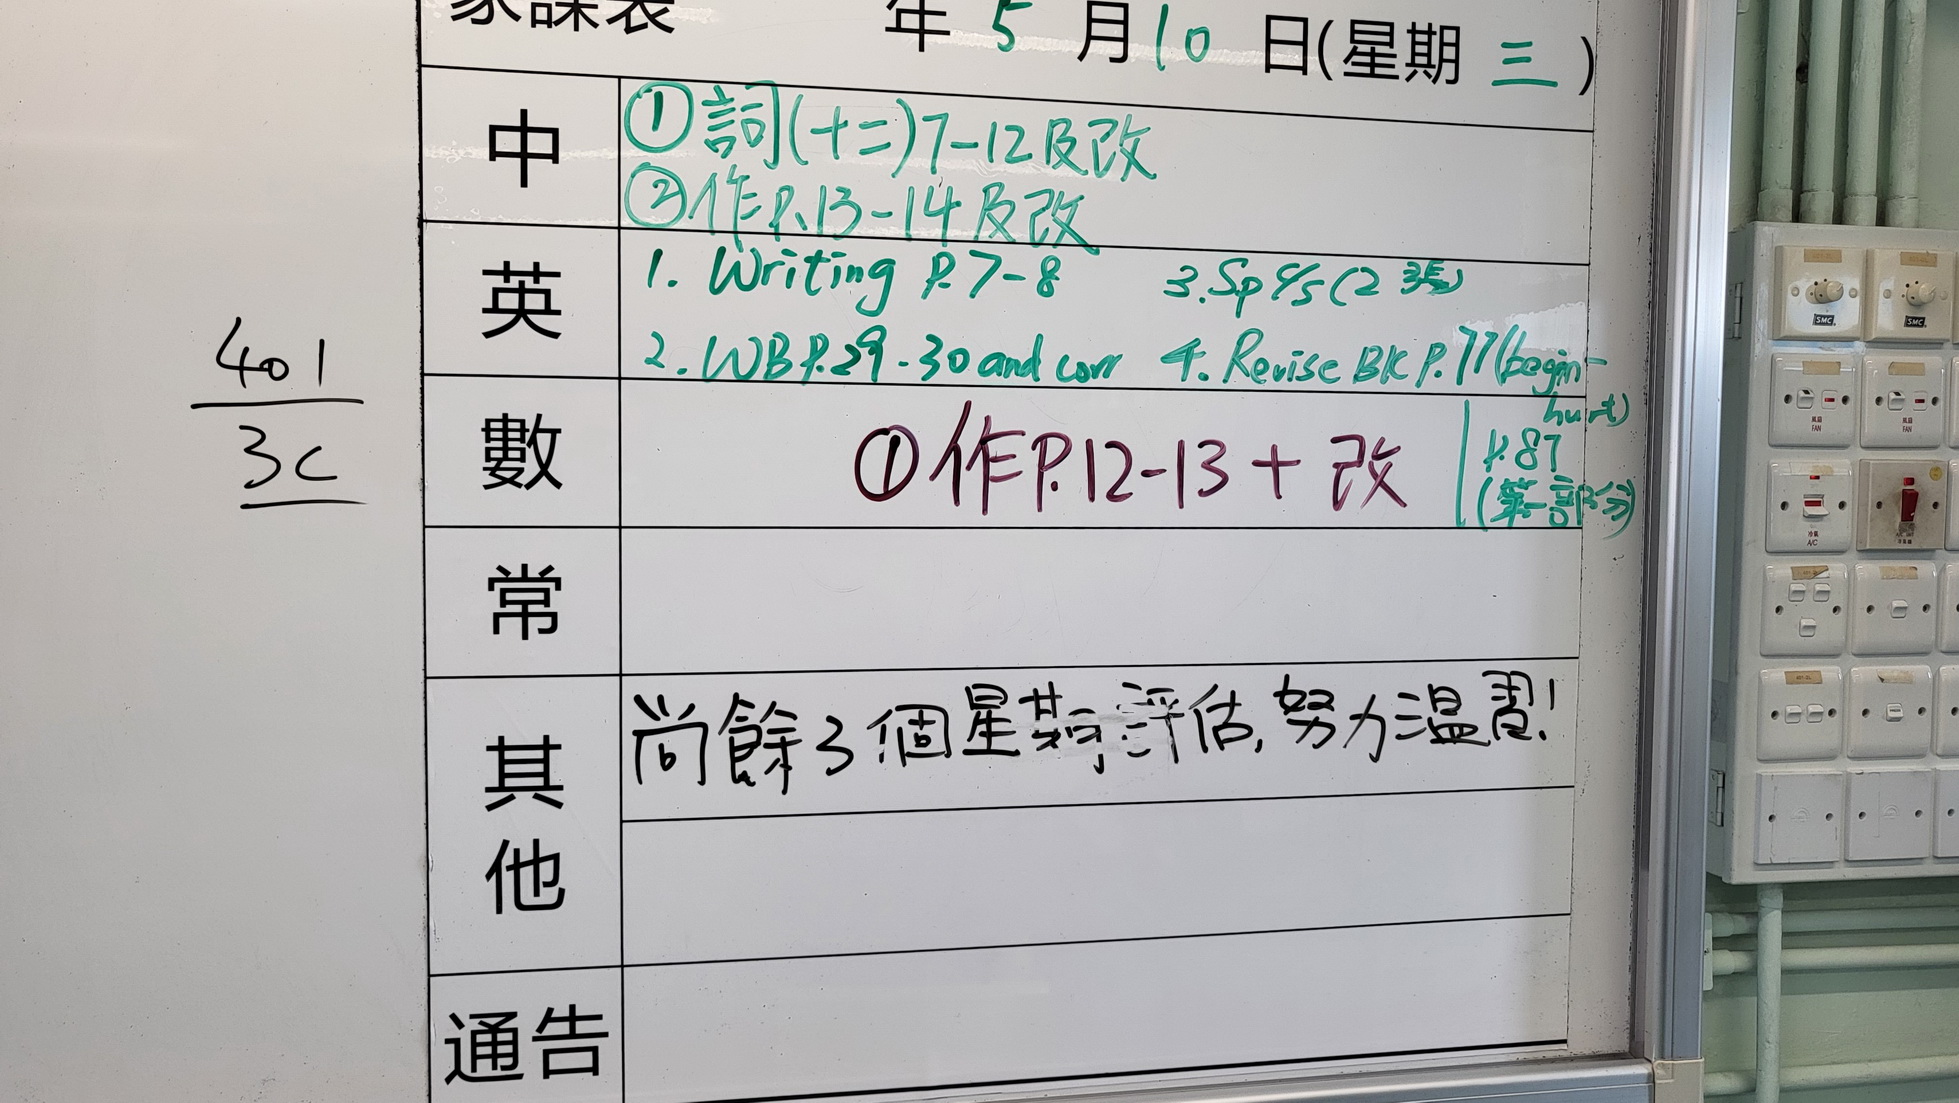 家課表 年 5 月 10 日(星期 三 )
中
① 詞(十二)7-12及改
② 作P.13-14及改
英
1. Writing P.7-8 3. Sp 4/5 (2張)
2. WB P.29-30 and corr 4. Revise BK P.77(begin-
hurt)
P.87
(第一部分)
數
① 作P.12-13 + 改
常
其他
尚餘3個星期評估,努力溫習!
通告
401
3C
SMC
SMC
風扇
FAN
風扇
FAN
冷氣
A/C